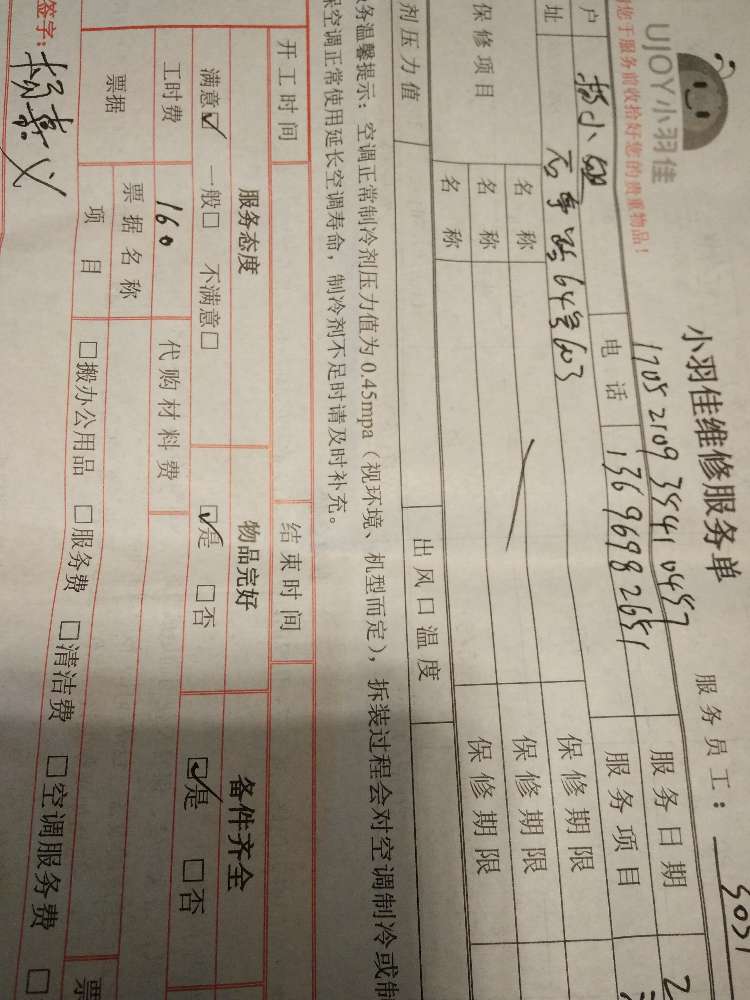 UJOY小羽佳
小羽佳维修服务单
服务员工:
您于服务前收拾好您的贵重物品!
1705 2109 3441 0457
服务日期
户
电话
136 9698 2651
服务项目
址
64号603
保修项目
名称
保修期限
名称
保修期限
名称
保修期限
剂压力值
出风口温度
务温馨提示:空调正常制冷剂压力值为0.45mpa(视环境、机型而定),拆装过程会对空调制冷或制
保空调正常使用延长空调寿命,制冷剂不足时请及时补充。
开工时间
结束时间
服务态度
物品完好
备件齐全
满意☑ 一般□ 不满意□
☑是 □否
☑是 □否
工时费
160
代购材料费
票据
票据名称
票
项目
□搬办公用品 □服务费 □清洁费 □空调服务费 □
签字: